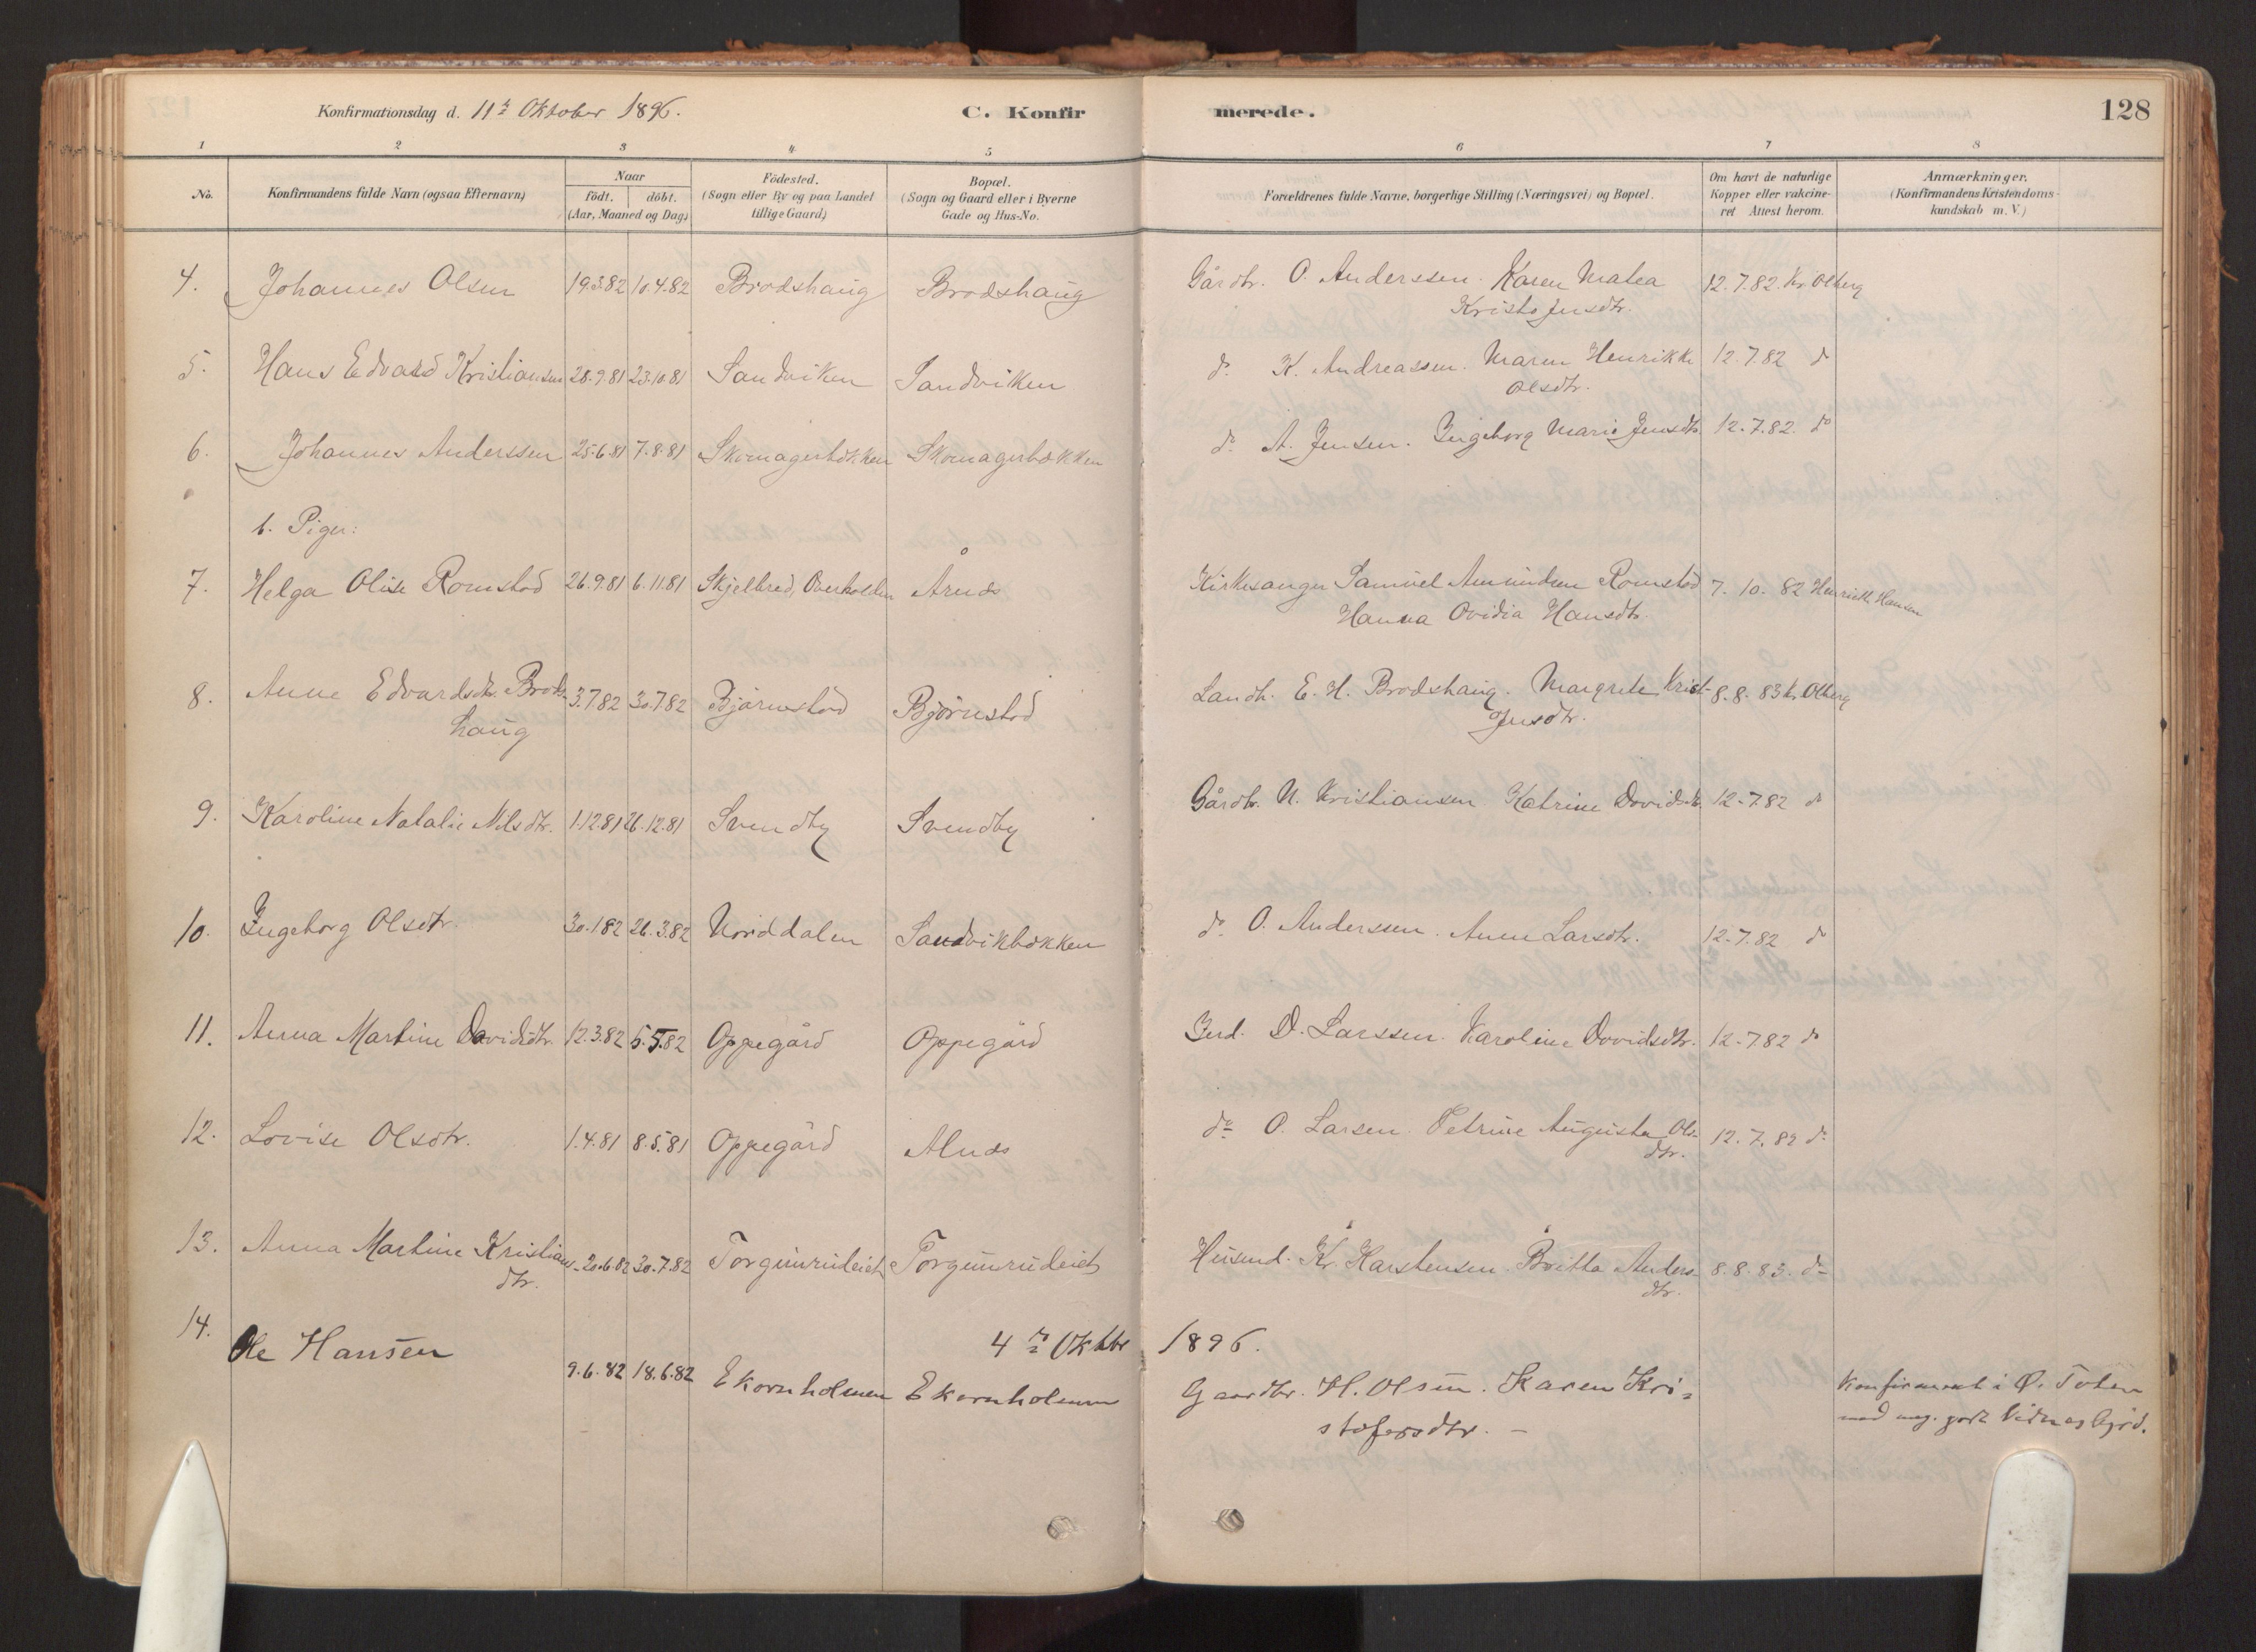 Konfirmationsdag d. 11te Oktober 1896. C. Konfir merede. 128
1 2 3 4 5 6 7 8
No. Konfirmandens fulde Navn (ogsaa Efternavn) Naar födt. döbt. (Aar, Maaned og Dag) Födested. (Sogn eller By og paa Landet tillige Gaard) Bopæl. (Sogn og Gaard eller i Byerne Gade og Hus-No. Forældrenes fulde Navne, borgerlige Stilling (Næringsvei) og Bopæl. Om havt de naturlige Kopper eller vakcineret Attest herom. Anmærkninger. (Konfirmandens Kristendomskundskab m. V.)
4. Johannes Olsen 19.3.82 10.4.82 Brodshaug Brodshaug Gårdbr. O. Anderssen. Karen Matea 12.7.82. Kr. Olberg
Kristofersdtr.
5. Hans Edvard Kristiansen 28.9.81 23.10.81 Sandviken Sandviken do K. Andreassen. Maren Henrikke 12.7.82 do
Olsdtr.
6. Johannes Anderssen 25.6.81 7.8.81 Skomagerbækken Skomagerbækken do A. Jensen. Ingeborg Marie Jensdtr. 12.7.82. do
b. Piger:
7. Helga Olise Romstad 26.9.81 6.11.81 Skjelbred, Overhalden Årnes Kirkesanger Samuel Amundsen Romstad 7.10.82 Henrik Hansen
Hanna Ovidia Hansdtr.
8. Anne Edvardsdtr. Brods- 3.7.82 30.7.82 Bjørnstad Bjørnstad Landh. E. H. Brodshaug. Margrete Krist- 8.8.83 Kr. Olberg
haug
9. Karoline Natalie Nilsdtr. 1.12.81 26.12.81 Svendby Svendby Gårdbr. N. Kristiansen. Katrine Davidsdtr. 12.7.82 do
10. Ingeborg Olsdtr. 30.1.82 26.3.82 Norddalen Sandvikbækken do O. Anderssen. Anne Larsdtr. 12.7.82 do
11. Anna Martine Davidsdtr. 12.3.82 5.5.82 Oppegård Oppegård D. Larssen. Karoline Davidsdtr. 12.7.82 do
12. Lovise Olsdtr. 1.4.81 8.5.81 Oppegård Alnes do O. Larsen. Petrine Augusta Ols- 12.7.82 do
dtr.
13. Anna Martine Kristians- 20.6.82 30.7.82 Torgunrudeiet Torgunrudeiet Husmd. Kr. Karstensen. Britta Anders- 8.8.83. do
dtr. dtr.
14. Ole Hansen 4de Oktbr 1896.
9.6.82 18.6.82 Ekornholmen Ekornholmen Gaardbr. H. Olsen. Karen Kri- Konfirmeret i Ø. Toten
stofersdtr. - med meg. godt Vidnesbyrd.